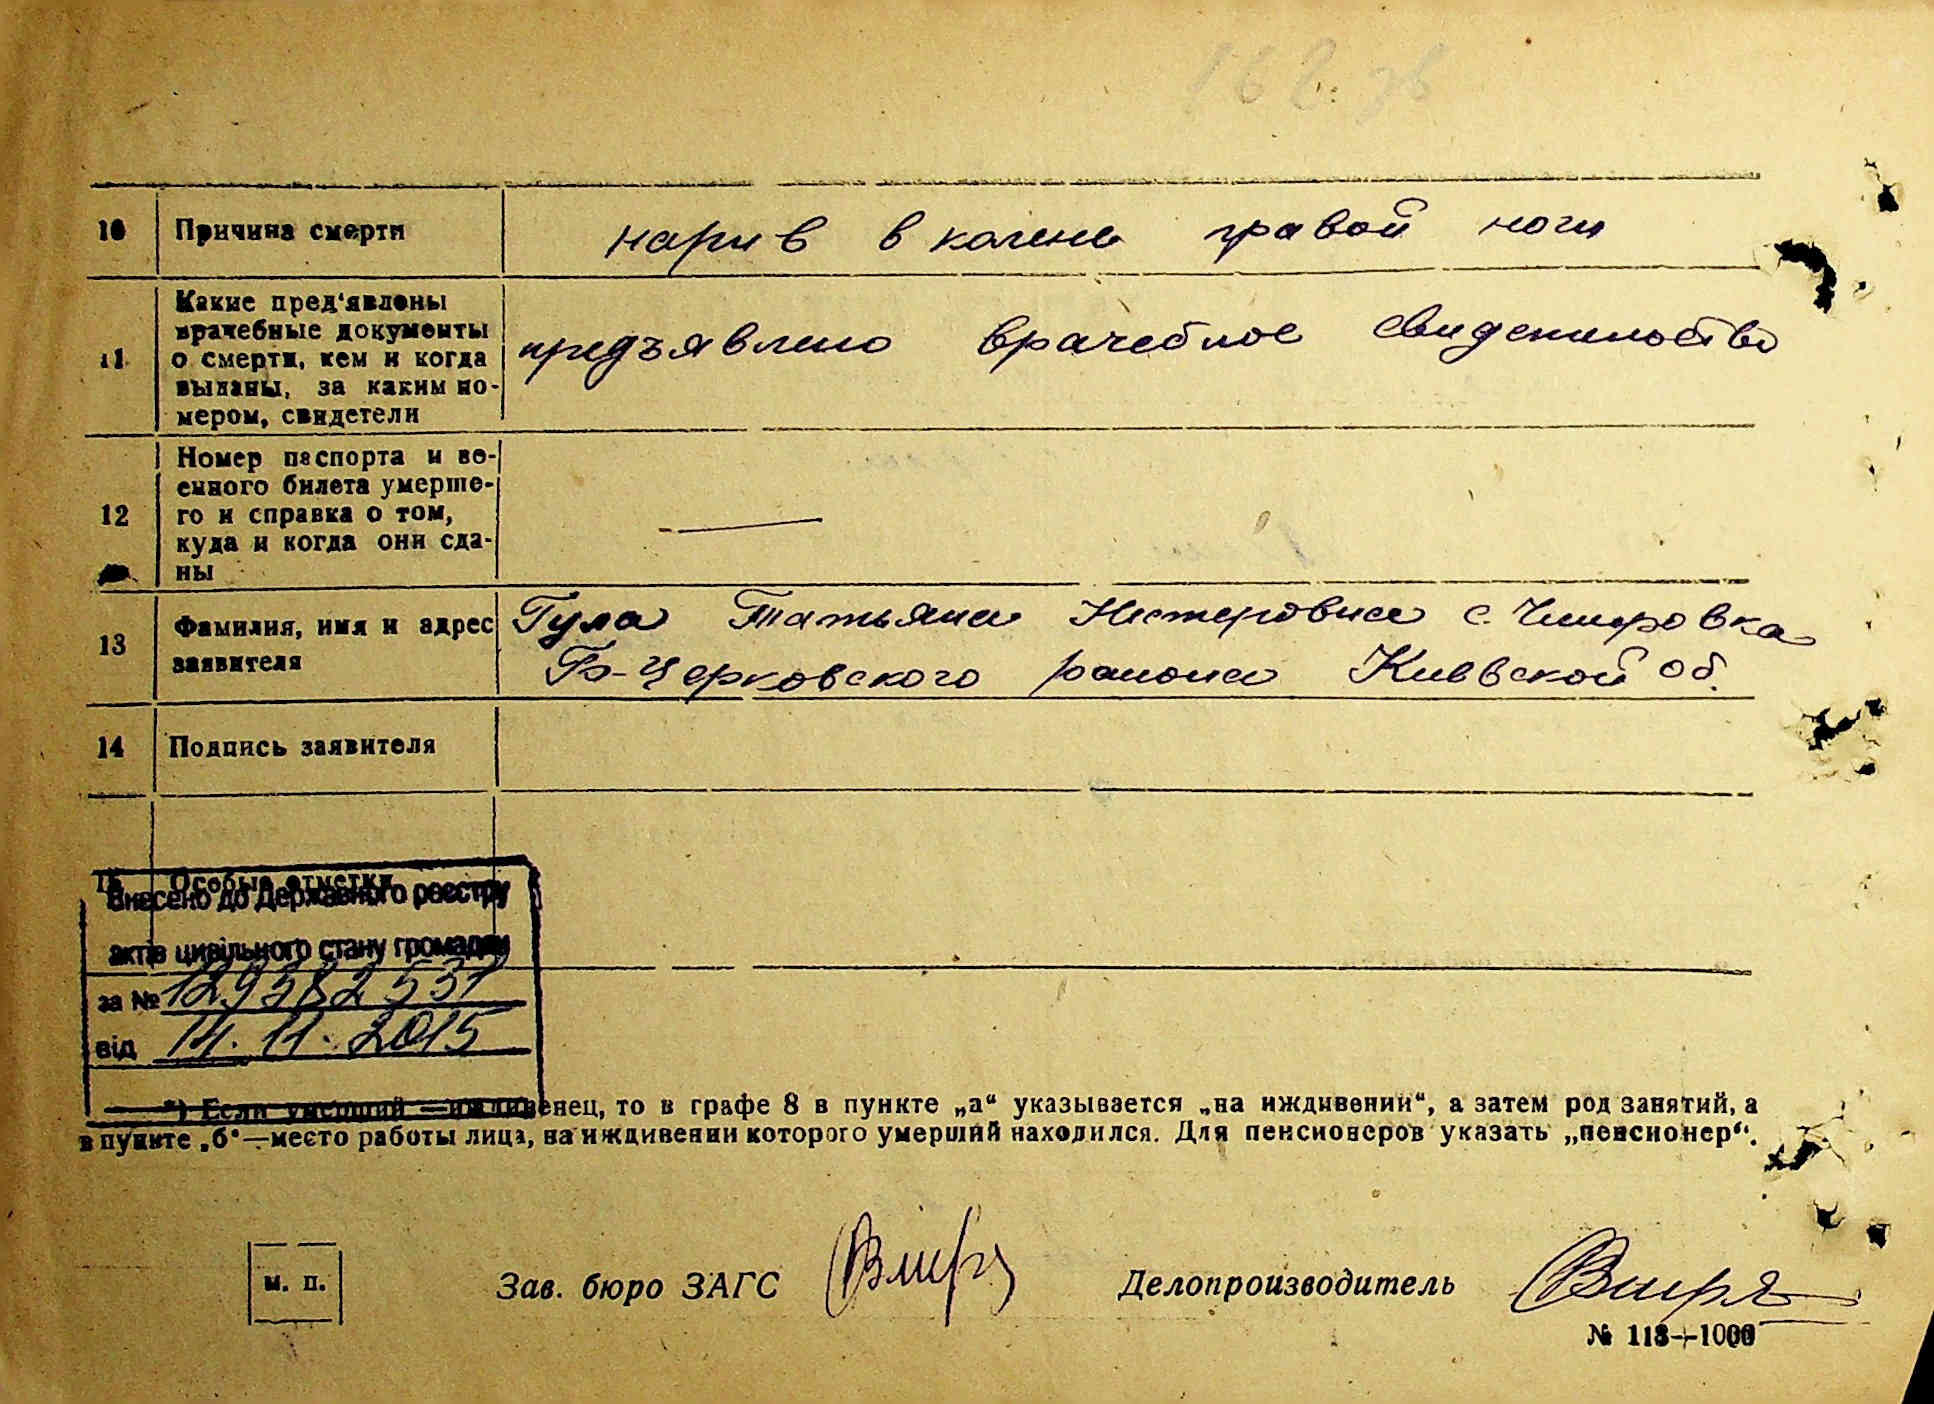 162 зв
10 Причина смерти нарив в колене правой ноги
11 Какие пред'явлены
врачебные документы
о смерти, кем и когда
выданы, за каким но-
мером, свидетели
предъявлено врачебное свидетельство
12 Номер паспорта и во-
енного билета умерше-
го и справка о том,
куда и когда они сда-
ны
—
13 Фамилия, имя и адрес
заявителя
Гула Татьяна Нестеровна с. Чмировка
Б-Церковского района Киевской об.
14 Подпись заявителя
15 Особые отметки
Внесено до Державного реєстру
актів цивільного стану громадян
за №
від 14.11.2015
*) Если умерший — иждивенец, то в графе 8 в пункте „а“ указывается „на иждивении“, а затем род занятий, а
в пункте „б“—место работы лица, на иждивении которого умерший находился. Для пенсионеров указать „пенсионер“.
м. п. Зав. бюро ЗАГС Делопроизводитель
№ 113—1000